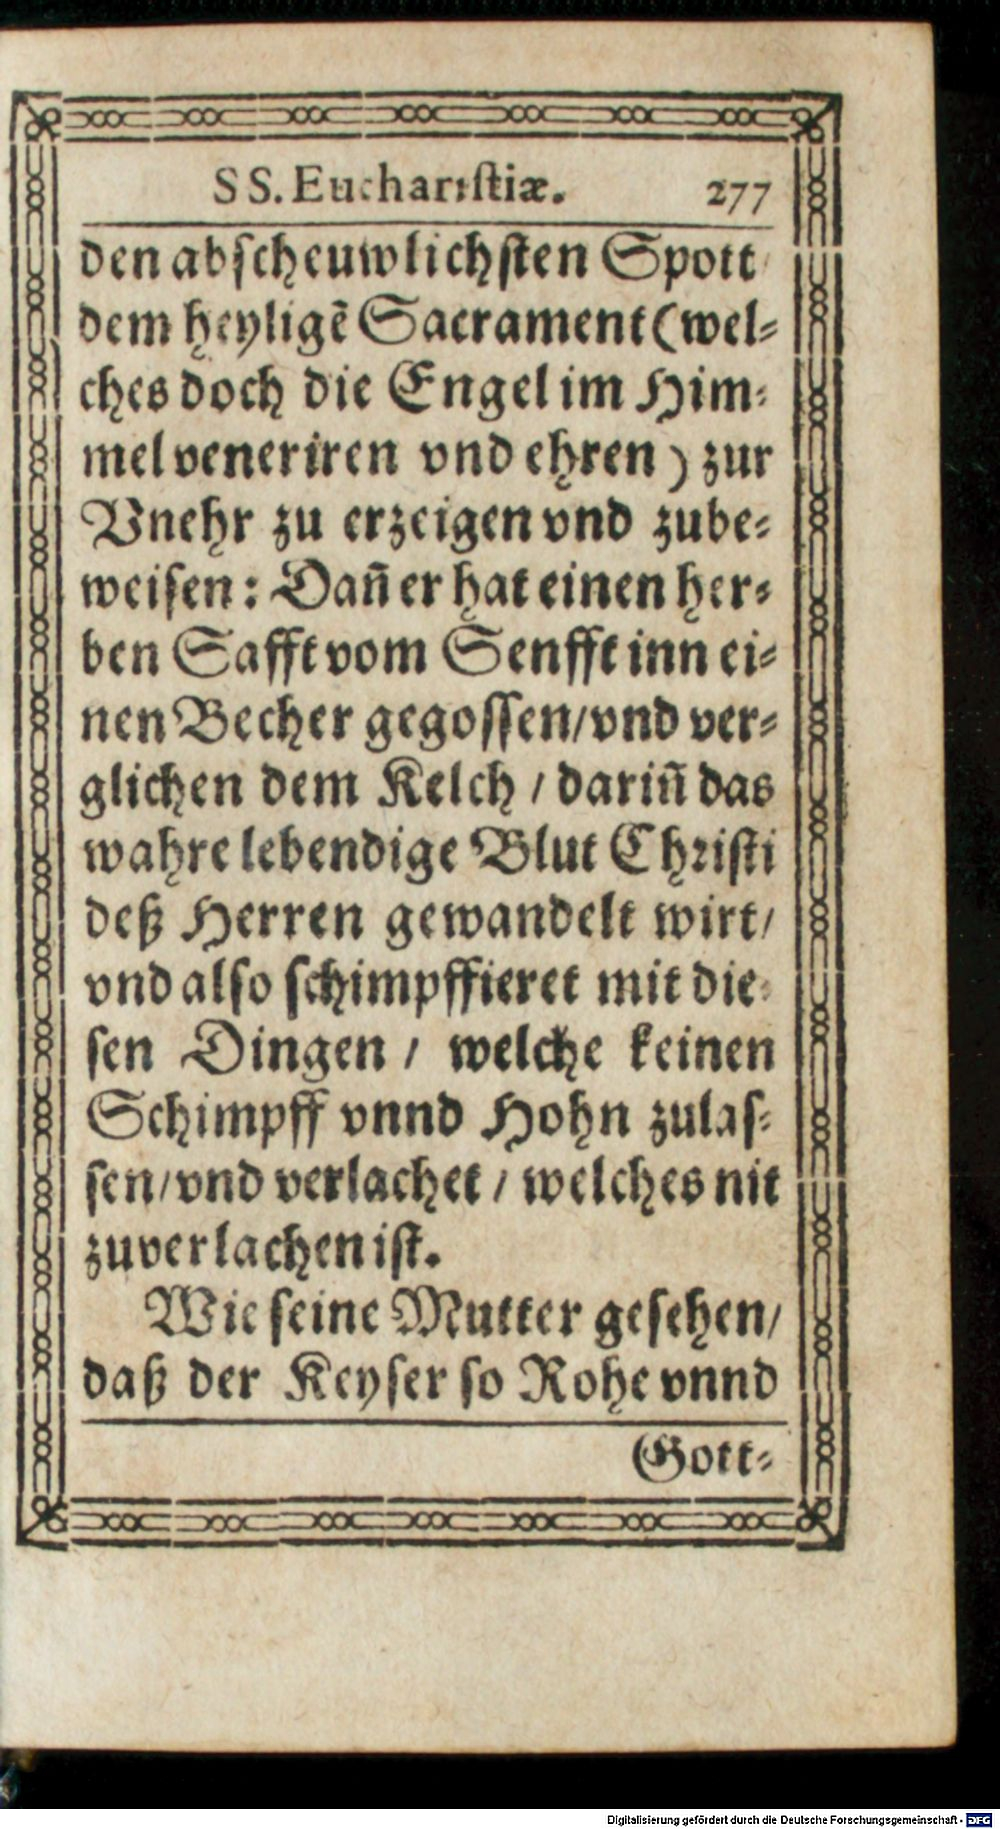 SS. Euchariſtiæ. 277
den abſcheuwlichſten Spott
dem heyligẽ Sacrament (wel⸗
ches doch die Engel im Him⸗
mel veneriren vnd ehren) zur
Vnehr zu erzeigen vnd zube⸗
weiſen: Dañ er hat einen her⸗
ben Safft vom Senfft inn ei⸗
nen Becher gegoſſen/ vnd ver⸗
glichen dem Kelch / dariñ das
wahre lebendige Blut Chꝛiſti
deß Herren gewandelt wirt/
vnd alſo ſchimpffieret mit die⸗
ſen Dingen / welche keinen
Schimpff vnnd Hohn zulaſ⸗
ſen/ vnd verlachet / welches nit
zuverlachen iſt.
Wie ſeine Mutter geſehen/
daß der Keyſer ſo Rohe vnnd
Gott⸗
Digitalisierung gefördert durch die Deutsche Forschungsgemeinschaft - DFG